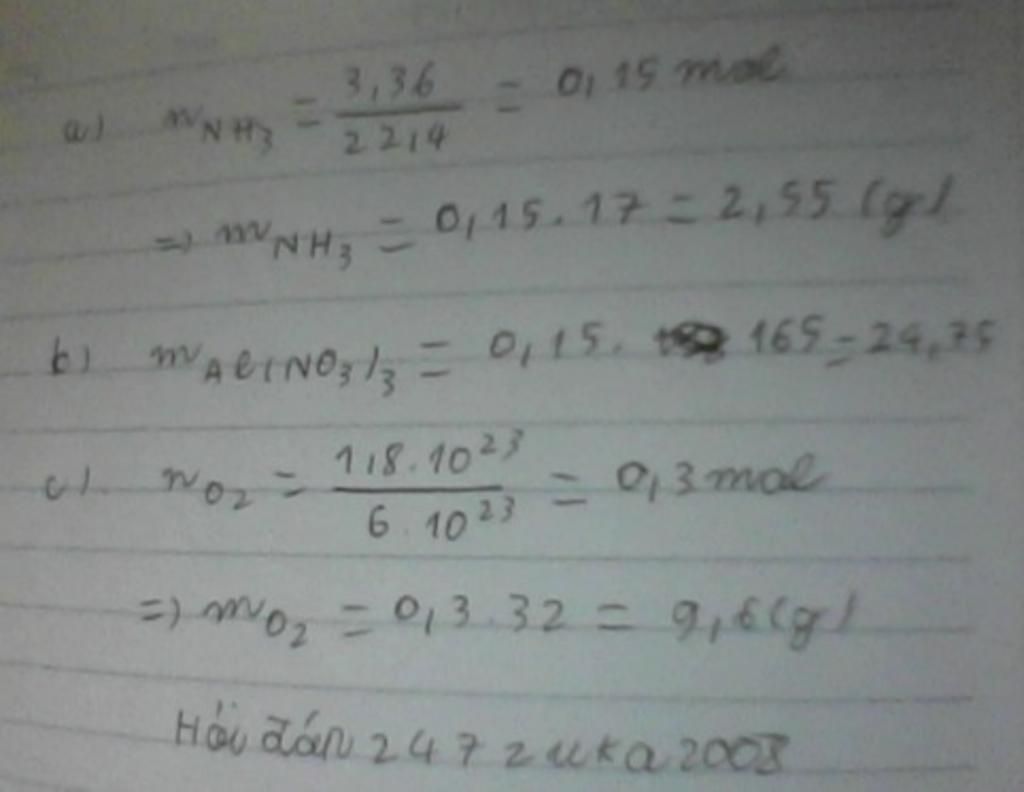 a) nNH₃ = 3,36 / 22,4 = 0,15 mol
=> mNH₃ = 0,15 . 17 = 2,55 (g)
b) mAl(NO₃)₃ = 0,15 . 165 = 24,75
c) nO₂ = 1,8 . 10²³ / 6 . 10²³ = 0,3 mol
=> mO₂ = 0,3 . 32 = 9,6 (g)
Hỏi đán 247 zuka2008